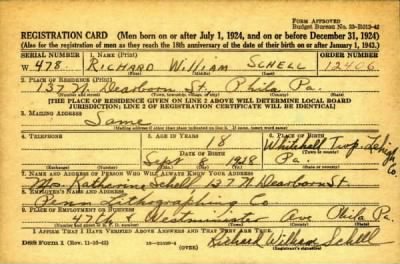 FORM APPROVED
Budget Bureau No. 33-R012-42
REGISTRATION CARD (Men born on or after July 1, 1924, and on or before December 31, 1924)
(Also for the registration of men as they reach the 18th anniversary of the date of their birth on or after January 1, 1943.)
SERIAL NUMBER 1. NAME (Print) ORDER NUMBER
W 478. RICHARD William SCHELL 12406
(First) (Middle) (Last)
2. PLACE OF RESIDENCE (Print)
137 N. Dearborn St. Phila Pa.
(Number and street) (Town, township, village, or city) (County) (State)
[THE PLACE OF RESIDENCE GIVEN ON LINE 2 ABOVE WILL DETERMINE LOCAL BOARD
JURISDICTION; LINE 2 OF REGISTRATION CERTIFICATE WILL BE IDENTICAL]
3. MAILING ADDRESS
Same
4. TELEPHONE 5. AGE IN YEARS 6. PLACE OF BIRTH
18 Whitehall Twp. Lehigh Co.
DATE OF BIRTH
Sept 8 Pa.
(Exchange) (Number) (Mo.) (Day) (Yr.) (State or country)
7. NAME AND ADDRESS OF PERSON WHO WILL ALWAYS KNOW YOUR ADDRESS
Mrs. Katherine Schell 137 N Dearborn St.
8. EMPLOYER'S NAME AND ADDRESS
Penn Lithographing Co.
9. PLACE OF EMPLOYMENT OR BUSINESS
47th & Westminister Ave Phila Pa.
(Number and street or R. F. D. number) (Town) (County) (State)
I AFFIRM THAT I HAVE VERIFIED ABOVE ANSWERS AND THAT THEY ARE TRUE.
DSS Form 1 (Rev. 11-16-42) (OVER) Richard William Schell